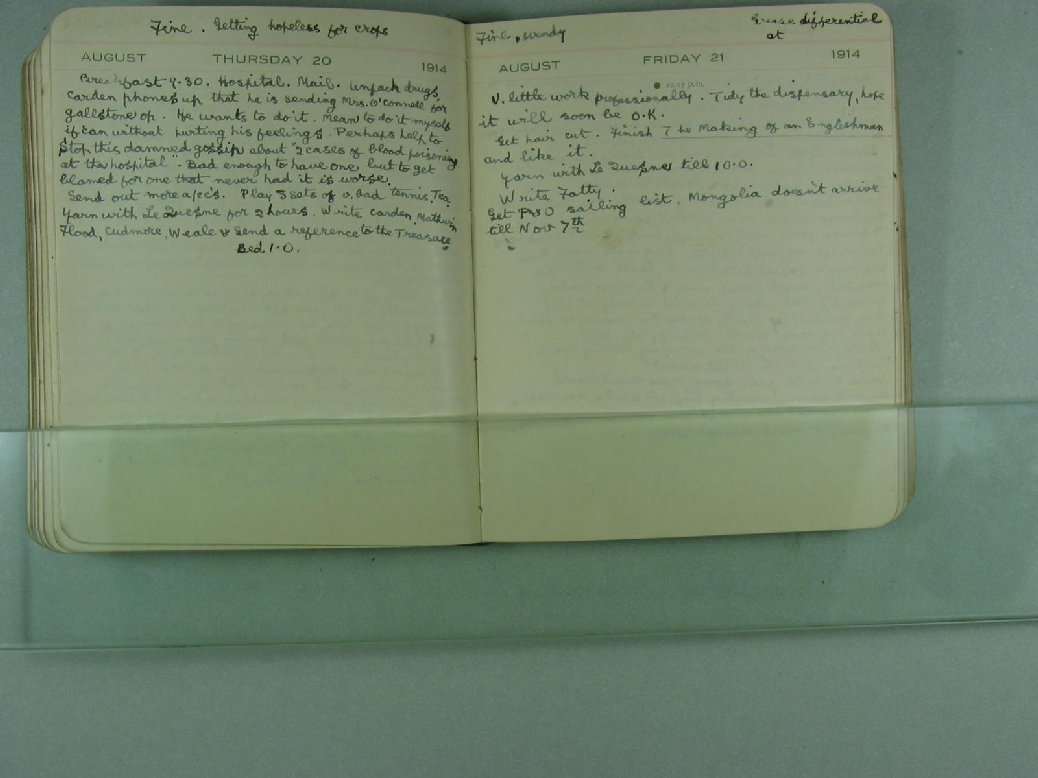 Fine. Getting hopeless for crops
AUGUST THURSDAY 20 1914
Breakfast 9.30. Hospital. Mail. unpack drugs,
Carden phones up that he is sending Mrs. O'Connell for
gallstone op. He wants to do it. Mean to do it myself
if can without hurting his feelings. Perhaps help to
stop this damned gossip about "2 cases of blood poisoning
at the hospital". Bad enough to have one but to get
blamed for one that never had it is worse.
Send out more a/cc's. Play 3 sets of v. bad tennis, Tea.
Yarn with Le Quesne for 2 hours. Write Carden,
Flood, Cudmore, Weale & send a reference to the Treasure
Bed 1.0.
Fine, windy
Grease differential
at
AUGUST FRIDAY 21 1914
V. little work professionally. Tidy the dispensary, hope
it will soon be O.K.
Get hair cut. Finish The Making of an Englishman
and like it.
Yarn with Le Quesne till 10.0.
Write Fatty.
Get P&O sailing list. Mongolia doesn't arrive
till Nov 7th